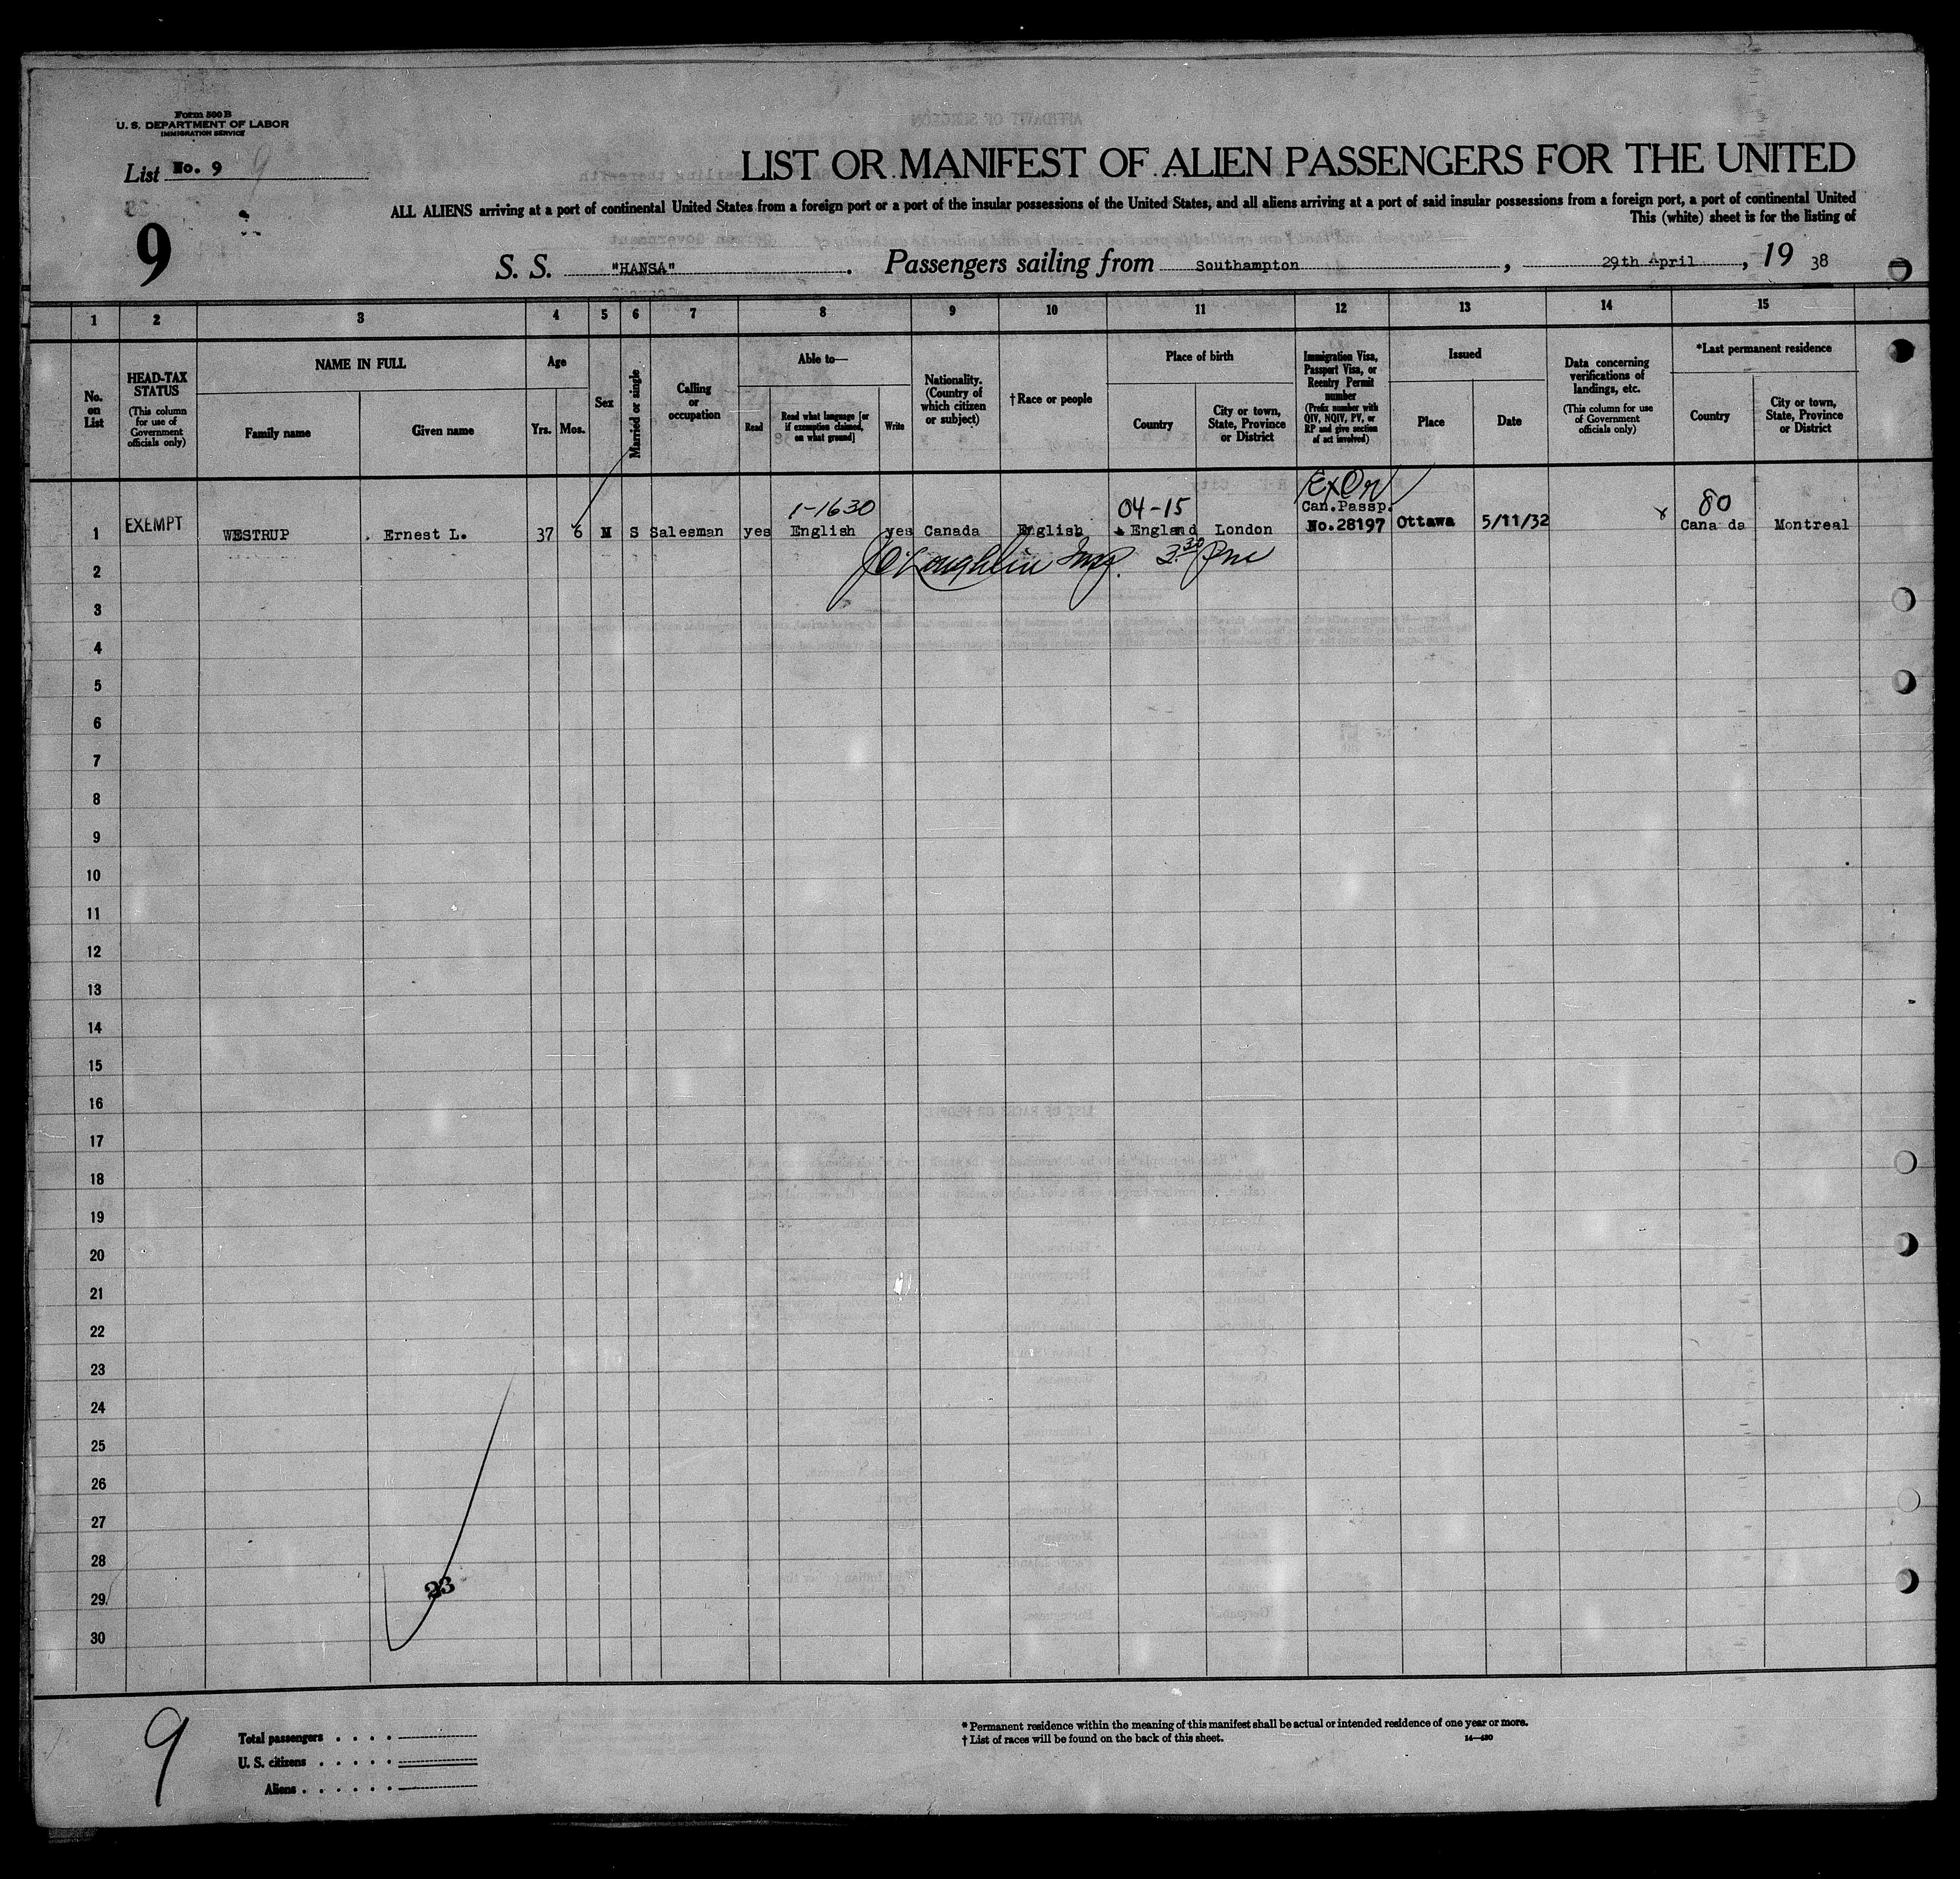 Form 500 B
U. S. DEPARTMENT OF LABOR
IMMIGRATION SERVICE
List No. 9 9
LIST OR MANIFEST OF ALIEN PASSENGERS FOR THE UNITED
ALL ALIENS arriving at a port of continental United States from a foreign port or a port of the insular possessions of the United States, and all aliens arriving at a port of said insular possessions from a foreign port, a port of continental United
This (white) sheet is for the listing of
9
S. S. "HANSA". Passengers sailing from Southampton, 29th April, 19 38
1 2 3 4 5 6 7 8 9 10 11 12 13 14 15
No. on List
HEAD-TAX STATUS
(This column for use of Government officials only)
NAME IN FULL
Family name
Given name
Age
Yrs. Mos.
Sex
Married or single
Calling or occupation
Able to—
Read
Read what language [or if exemption claimed, on what ground]
Write
Nationality. (Country of which citizen or subject)
† Race or people
Place of birth
Country
City or town, State, Province or District
Immigration Visa, Passport Visa, or Reentry Permit number
(Prefix number with QIV, NQIV, PV, or RP and give section of act involved)
Issued
Place
Date
Data concerning verifications of landings, etc.
(This column for use of Government officials only)
*Last permanent residence
Country
City or town, State, Province or District
1-1630 04-15 80
Can.Passp.
1 EXEMPT WESTRUP Ernest L. 37 6 M S Salesman yes English yes Canada English England London No.28197 Ottawa 5/11/32 Cana da Montreal
2 J O'Loughlin Insp. 3.30 Pm
3
4
5
6
7
8
9
10
11
12
13
14
15
16
17
18
19
20
21
22
23
24
25
26
27
28
23
29
30
9
Total passengers
U. S. citizens
Aliens
* Permanent residence within the meaning of this manifest shall be actual or intended residence of one year or more.
† List of races will be found on the back of this sheet. 14—480